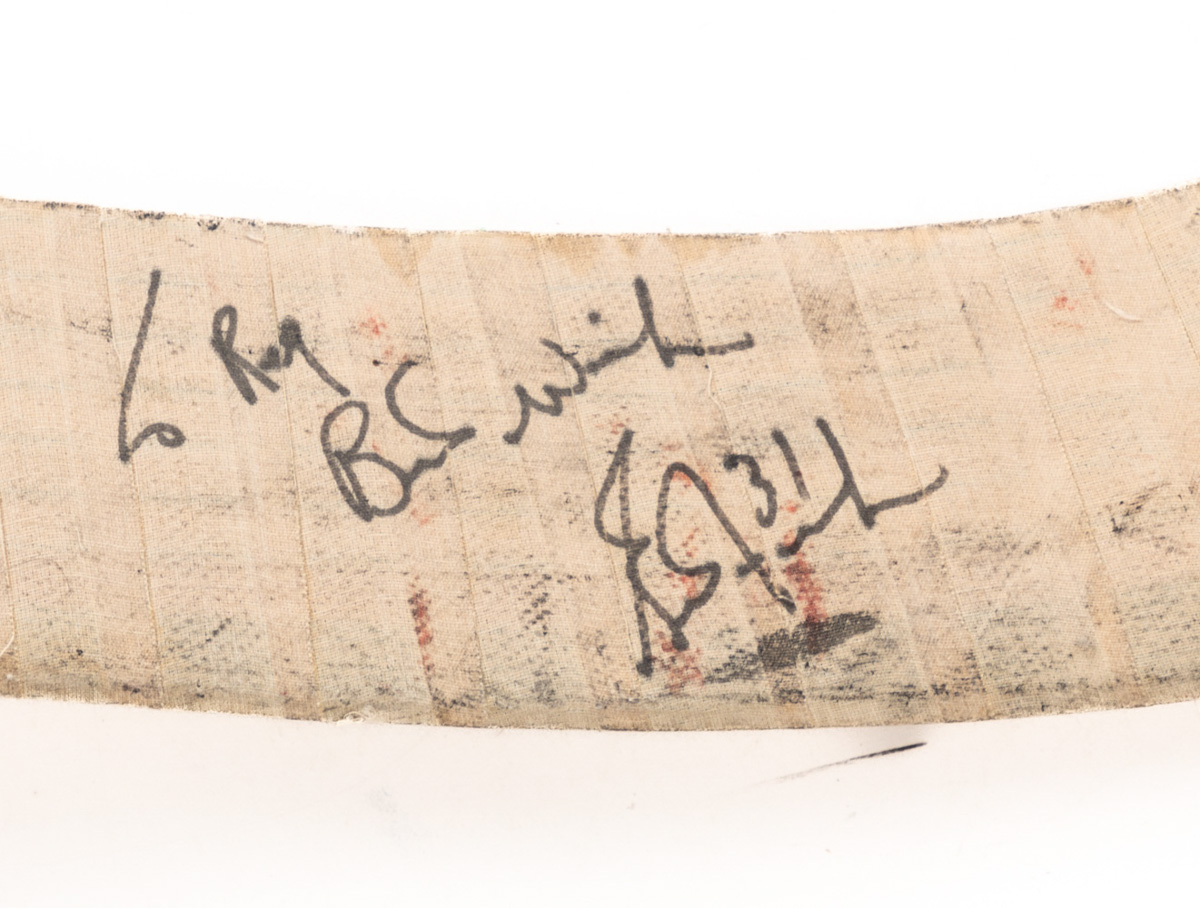 To Ray
Best Wishes
31